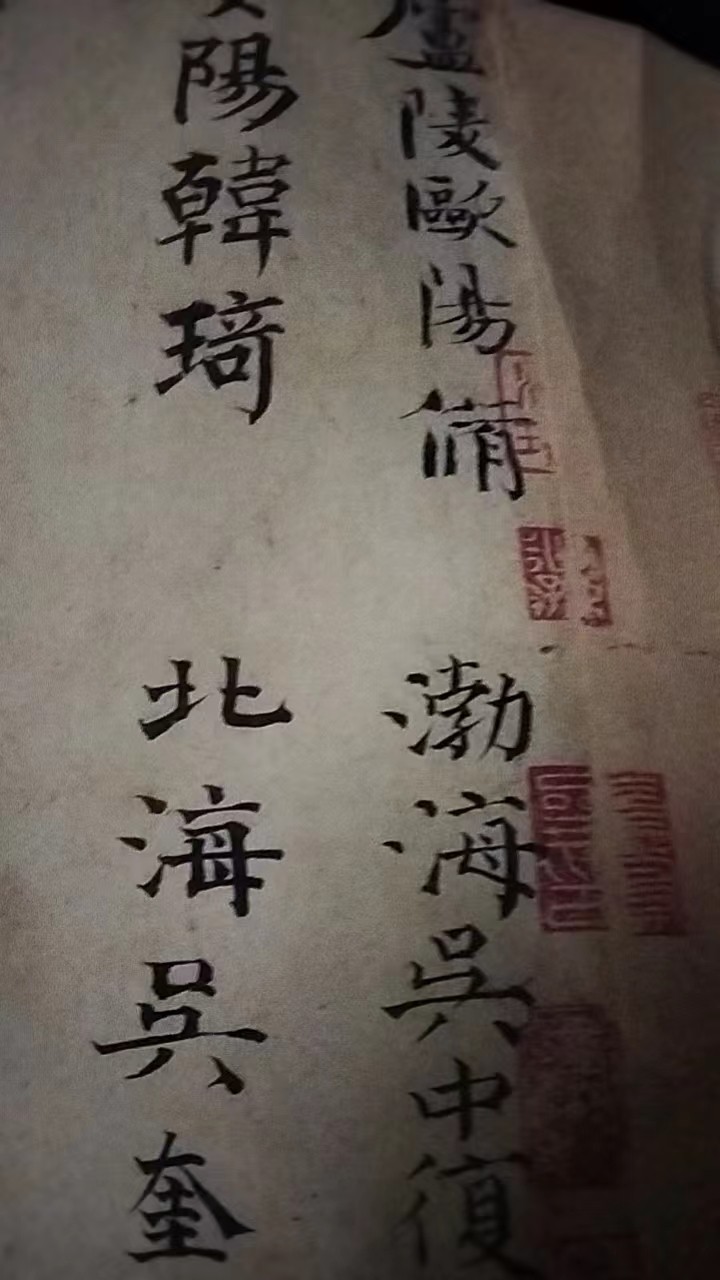 廬陵歐陽脩
渤海吳中復
陽韓琦
北海吳奎